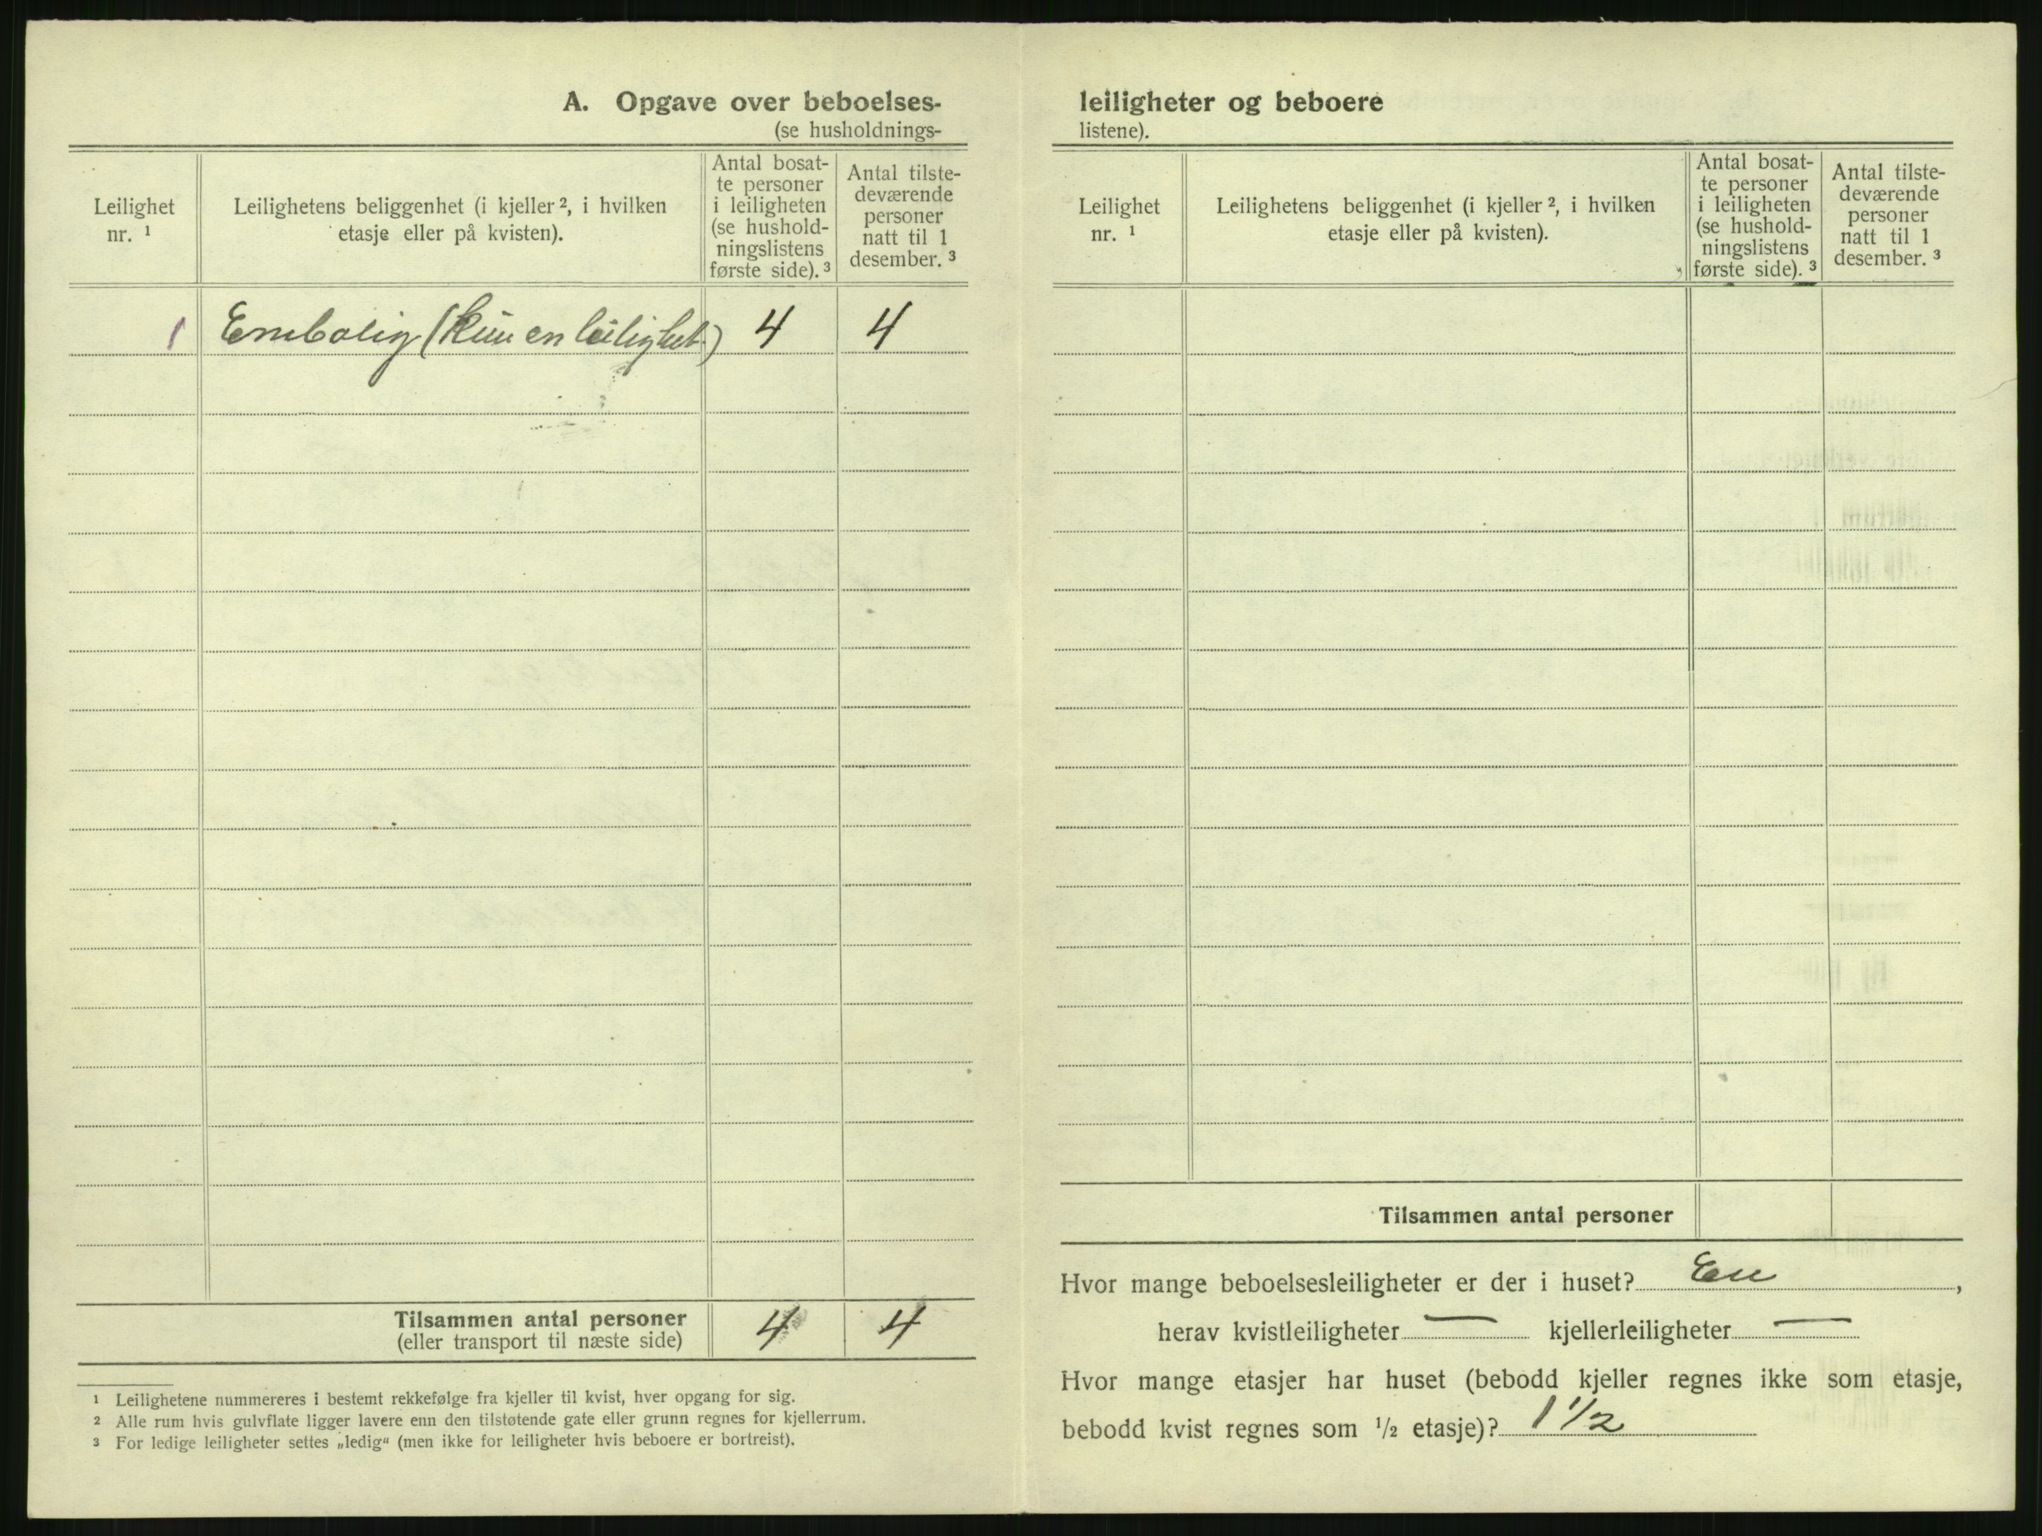 A. Opgave over beboelses-
(se husholdnings-
Leilighet
nr. ¹
Leilighetens beliggenhet (i kjeller ², i hvilken
etasje eller på kvisten).
Antal bosat-
te personer
i leiligheten
(se hushold-
ningslistens
første side). ³
Antal tilste-
deværende
personer
natt til 1
desember. ³
1 Enebolig (kun en leilighet) 4 4
Tilsammen antal personer 4 4
(eller transport til næste side)
¹ Leilighetene nummereres i bestemt rekkefølge fra kjeller til kvist, hver opgang for sig.
² Alle rum hvis gulvflate ligger lavere enn den tilstøtende gate eller grunn regnes for kjellerrum.
³ For ledige leiligheter settes „ledig“ (men ikke for leiligheter hvis beboere er bortreist).
leiligheter og beboere
listene).
Leilighet
nr. ¹
Leilighetens beliggenhet (i kjeller ², i hvilken
etasje eller på kvisten).
Antal bosat-
te personer
i leiligheten
(se hushold-
ningslistens
første side). ³
Antal tilste-
deværende
personer
natt til 1
desember. ³
Tilsammen antal personer
Hvor mange beboelsesleiligheter er der i huset? En,
herav kvistleiligheter — kjellerleiligheter —
Hvor mange etasjer har huset (bebodd kjeller regnes ikke som etasje,
bebodd kvist regnes som ½ etasje)? 1 1/2